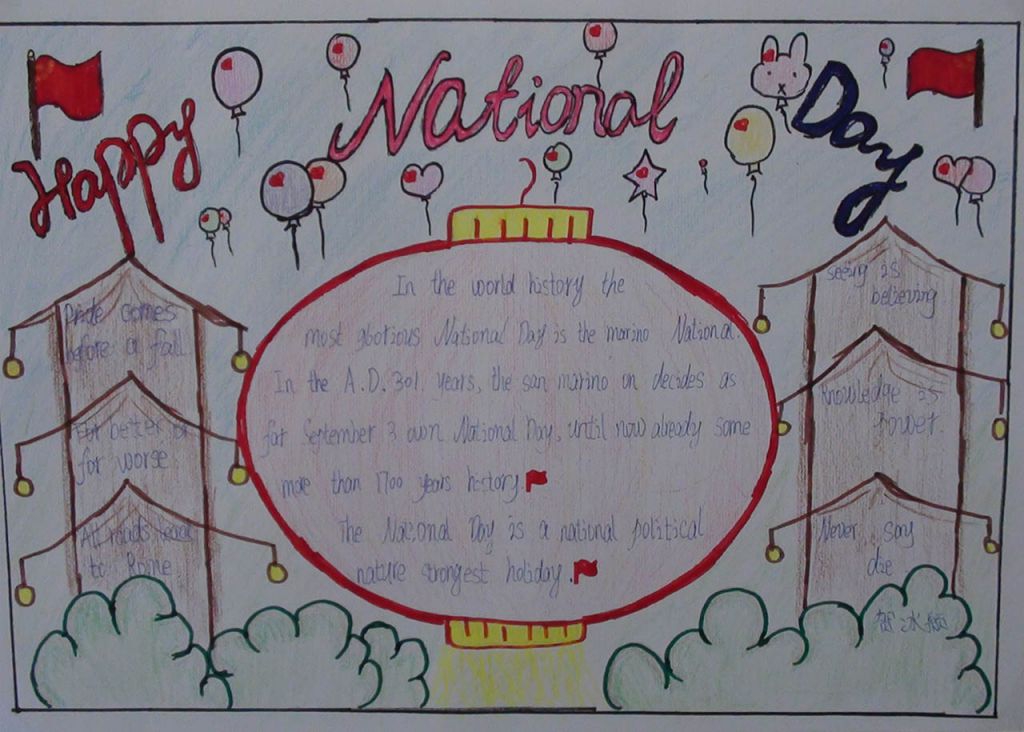 Happy National Day
Pride comes
before a fall
For better or
for worse
All roads lead
to Rome
In the world history the
most glorious National Day is the marino National.
In the A.D.301, years, the san marino on decides as
far September 3 own National Day, until now already some
more than 1700 years history
The National Day is a national political
nature strongest holiday.
seeing is
believing
Knowledge is
Power.
Never say
die